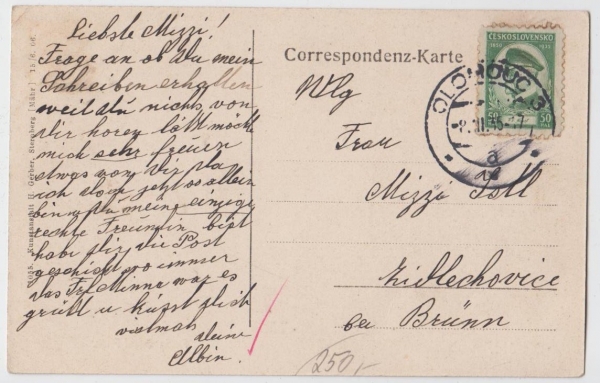 Liebste Mizzi!
Frage an ob Du mein
Schreiben erhalten
weil Du nichts von
Dir horen läßt möchte
mich sehr freuen
etwas von Dir da
ich doch jetzt so allein
bin u Du meine einzige
echte Freundin bist
hab Dir die Post
geschickt wo immer
das Frl Minna war es
grüßt u küsst Dich
vielmals
deine
Albin.
Kunstanstalt
Gerber, Sternberg [Mähr.]
Correspondenz-Karte
ČESKOSLOVENSKO
50 50
OLOMOUC 3
Wlg
Frau
Mizzi
Židlochovice
bei Brünn
250,-